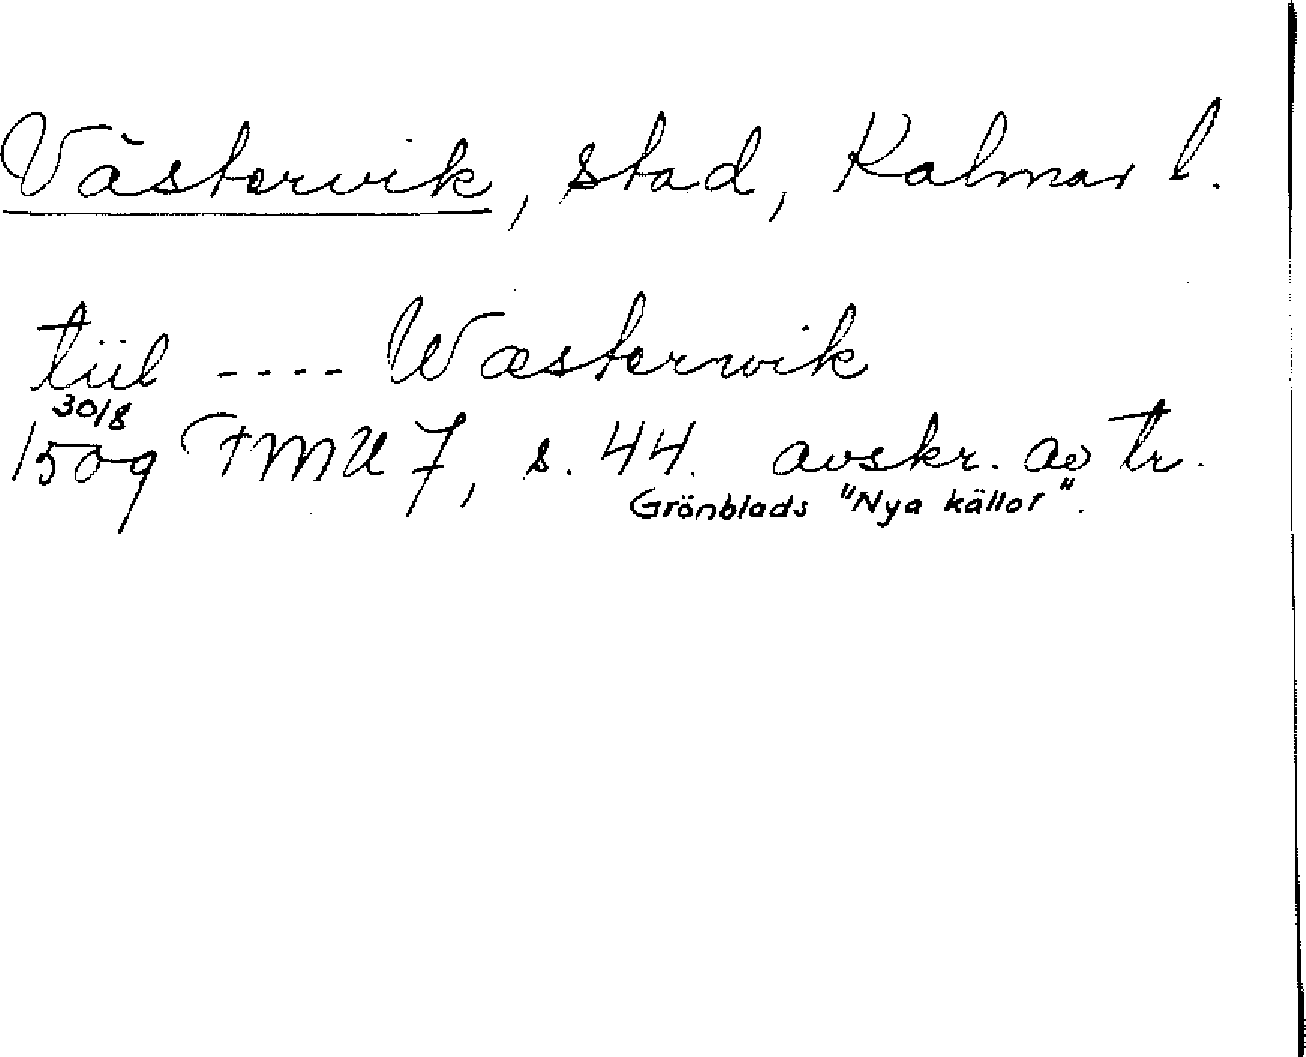 Västervik, stad, Kalmar l.
tiil ---- Wæsterwik
30/8
1509 FMU 7, s. 44. avskr. av tr.
Grönblads "Nya källor".